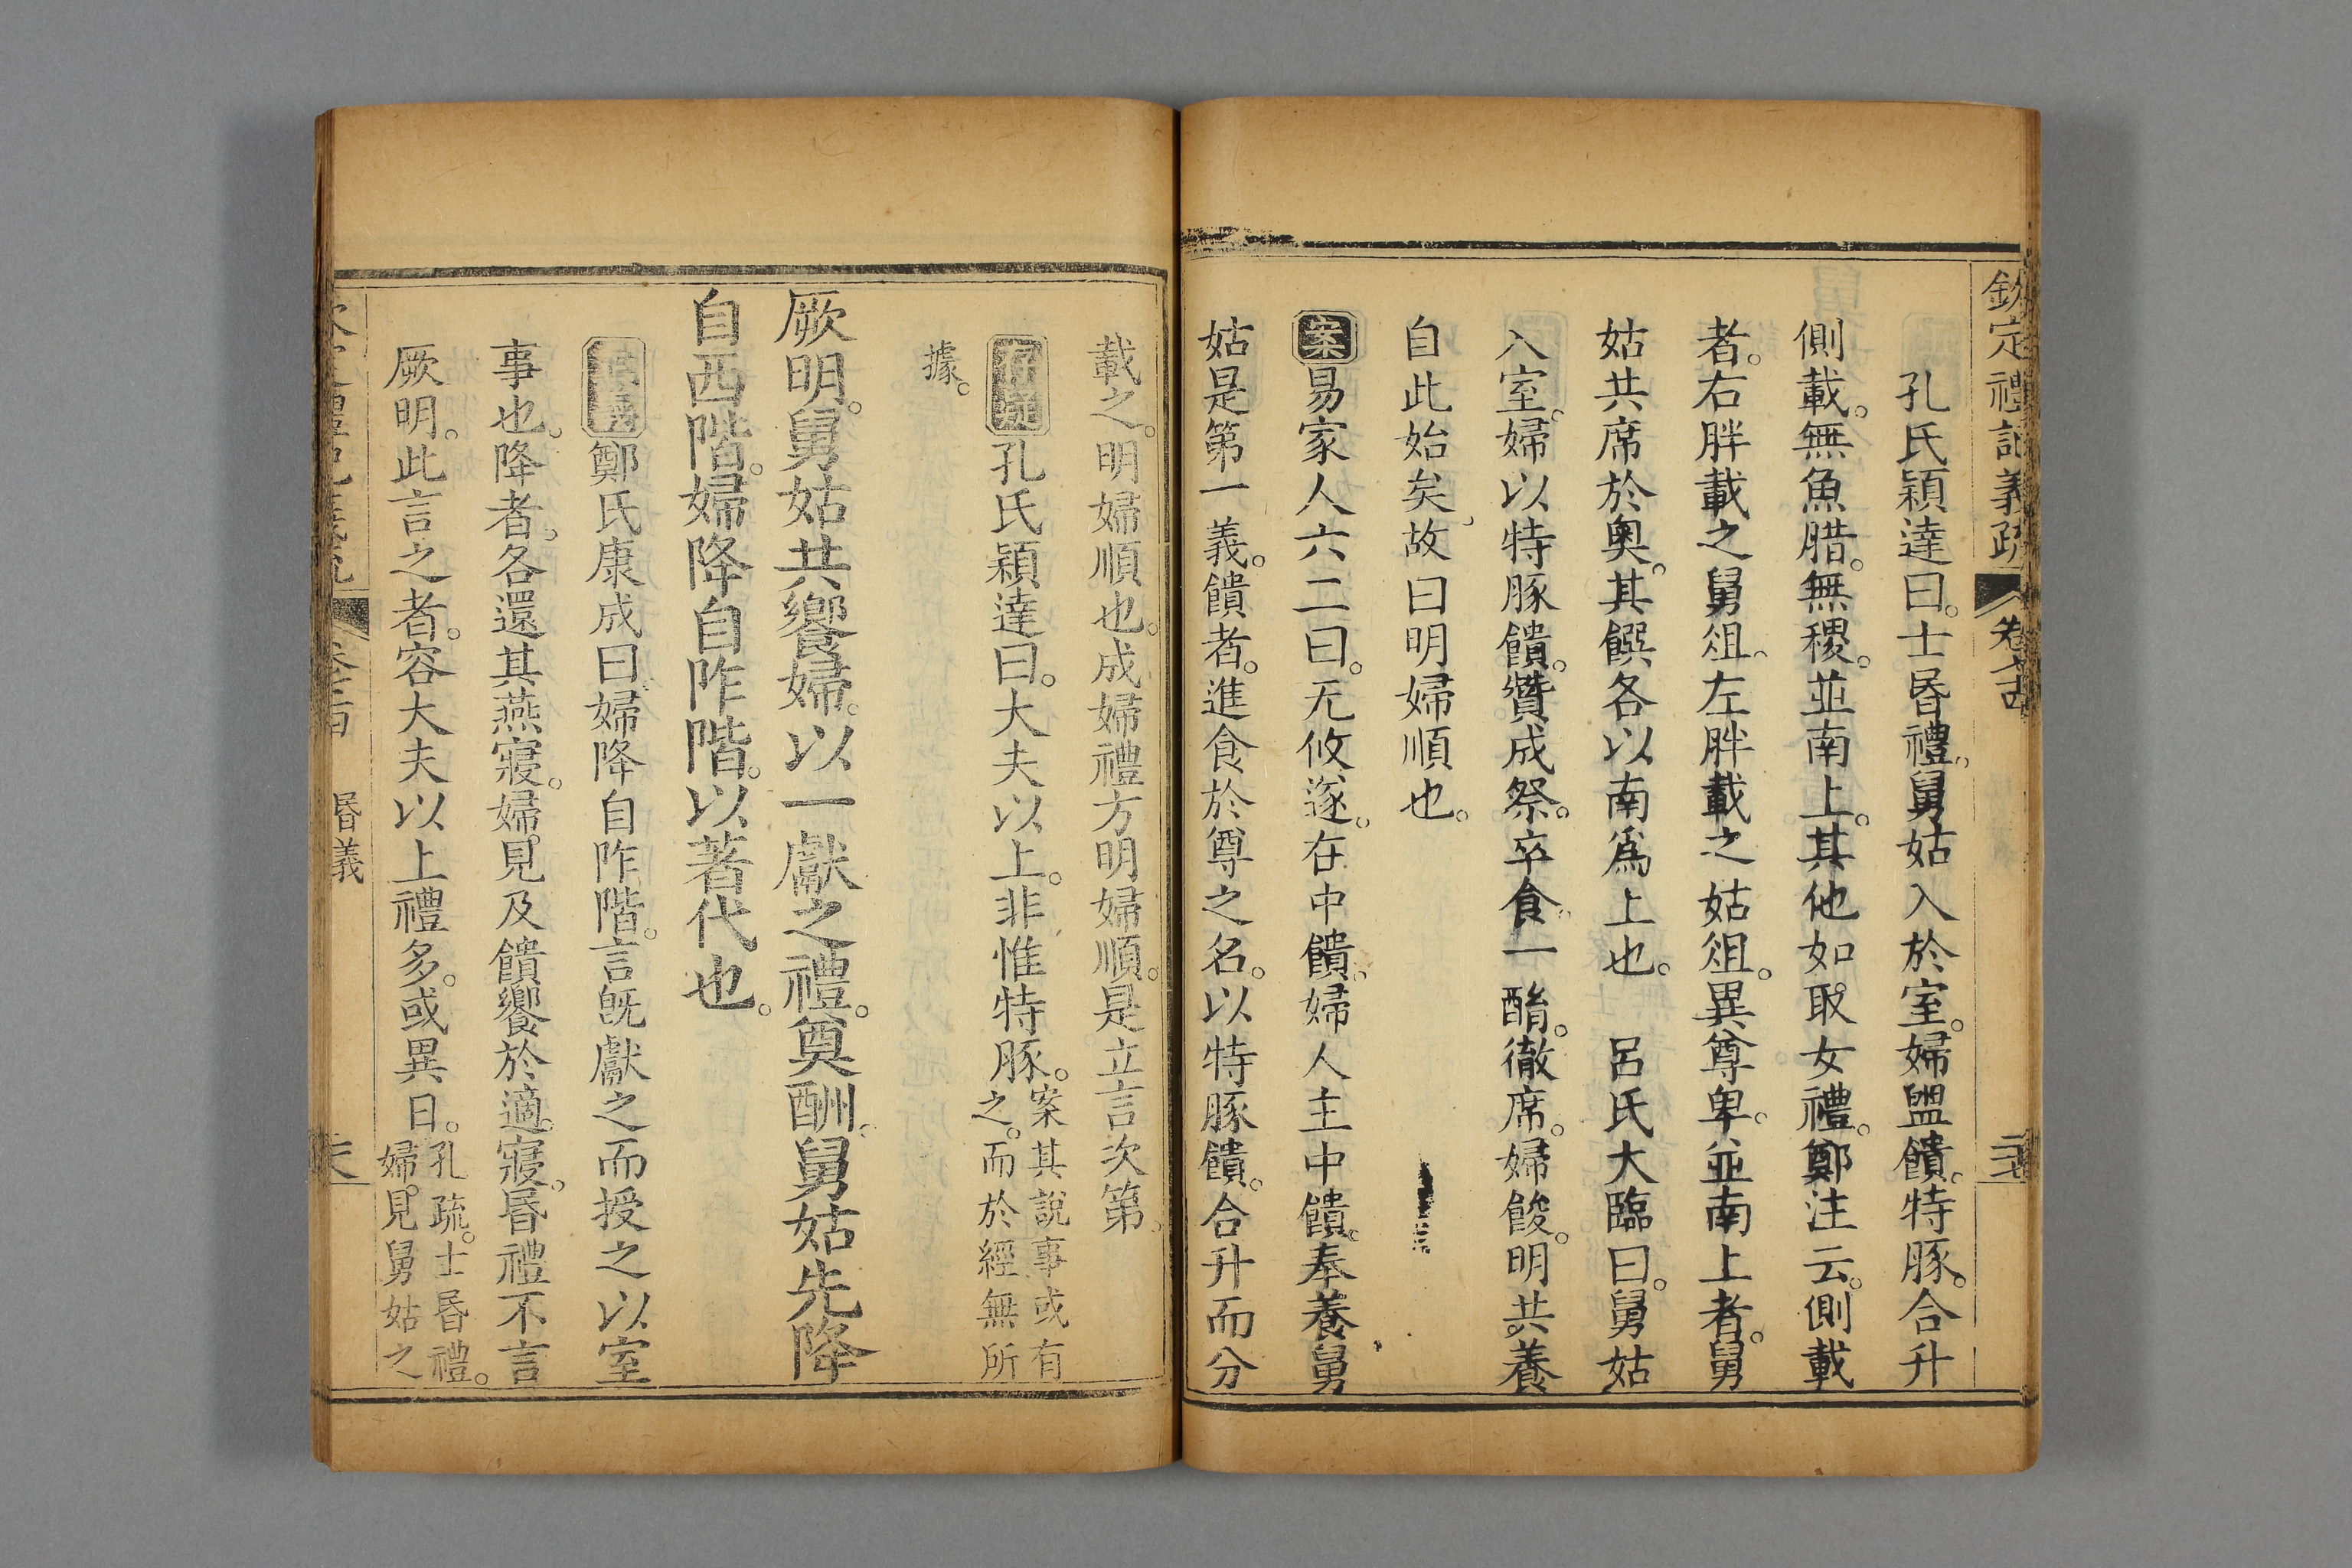 欽定禮記義疏
孔氏穎達曰。士昬禮。舅姑入於室。婦盥饋。特豚。合升
側載。無魚腊。無稷。並南上。其他如取女禮。鄭注云。側載
者。右胖載之舅俎。左胖載之姑俎。異尊卑。並南上者。舅
姑共席於奧。其饌各以南爲上也。 呂氏大臨曰。舅姑
入室。婦以特豚饋。贊成祭。卒食。一酳。徹席。婦餕。明共養
自此始矣。故曰明婦順也。
案易家人六二曰。无攸遂。在中饋。婦人主中饋。奉養舅
姑是第一義。饋者。進食於尊之名。以特豚饋。合升而分
載之。明婦順也。成婦禮方明婦順。是立言次第。
孔氏穎達曰。大夫以上。非惟特豚。案其說事或有
之。而於經無所
據。
厥明。舅姑共饗婦。以一獻之禮。奠酬。舅姑先降
自西階。婦降自阼階。以著代也。
鄭氏康成曰。婦降自阼階。言旣獻之而授之以室
事也。降者。各還其燕寢。婦見及饋饗於適寢。昬禮不言
厥明。此言之者。容大夫以上禮多。或異日。孔疏。士昬禮。
婦見舅姑之
昬義